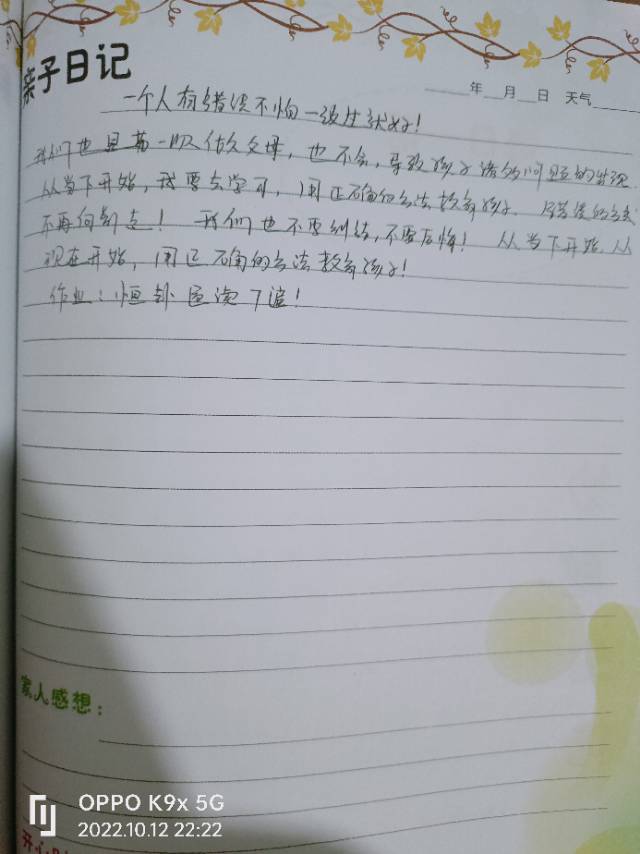 亲子日记
年 月 日 天气
一个人有错误不怕一改生就好!
我们也是第一次做父母,也不会,导致孩子诸多问题的出现
从当下开始,我要去学习,用正确的方法教育孩子.
不再何制造! 我们也不要纠结,不要后悔! 从当下开始.从
现在开始,用正确的方法教育孩子!
作业:恒卦 已读7遍!
家人感想:
OPPO K9x 5G
2022.10.12 22:22